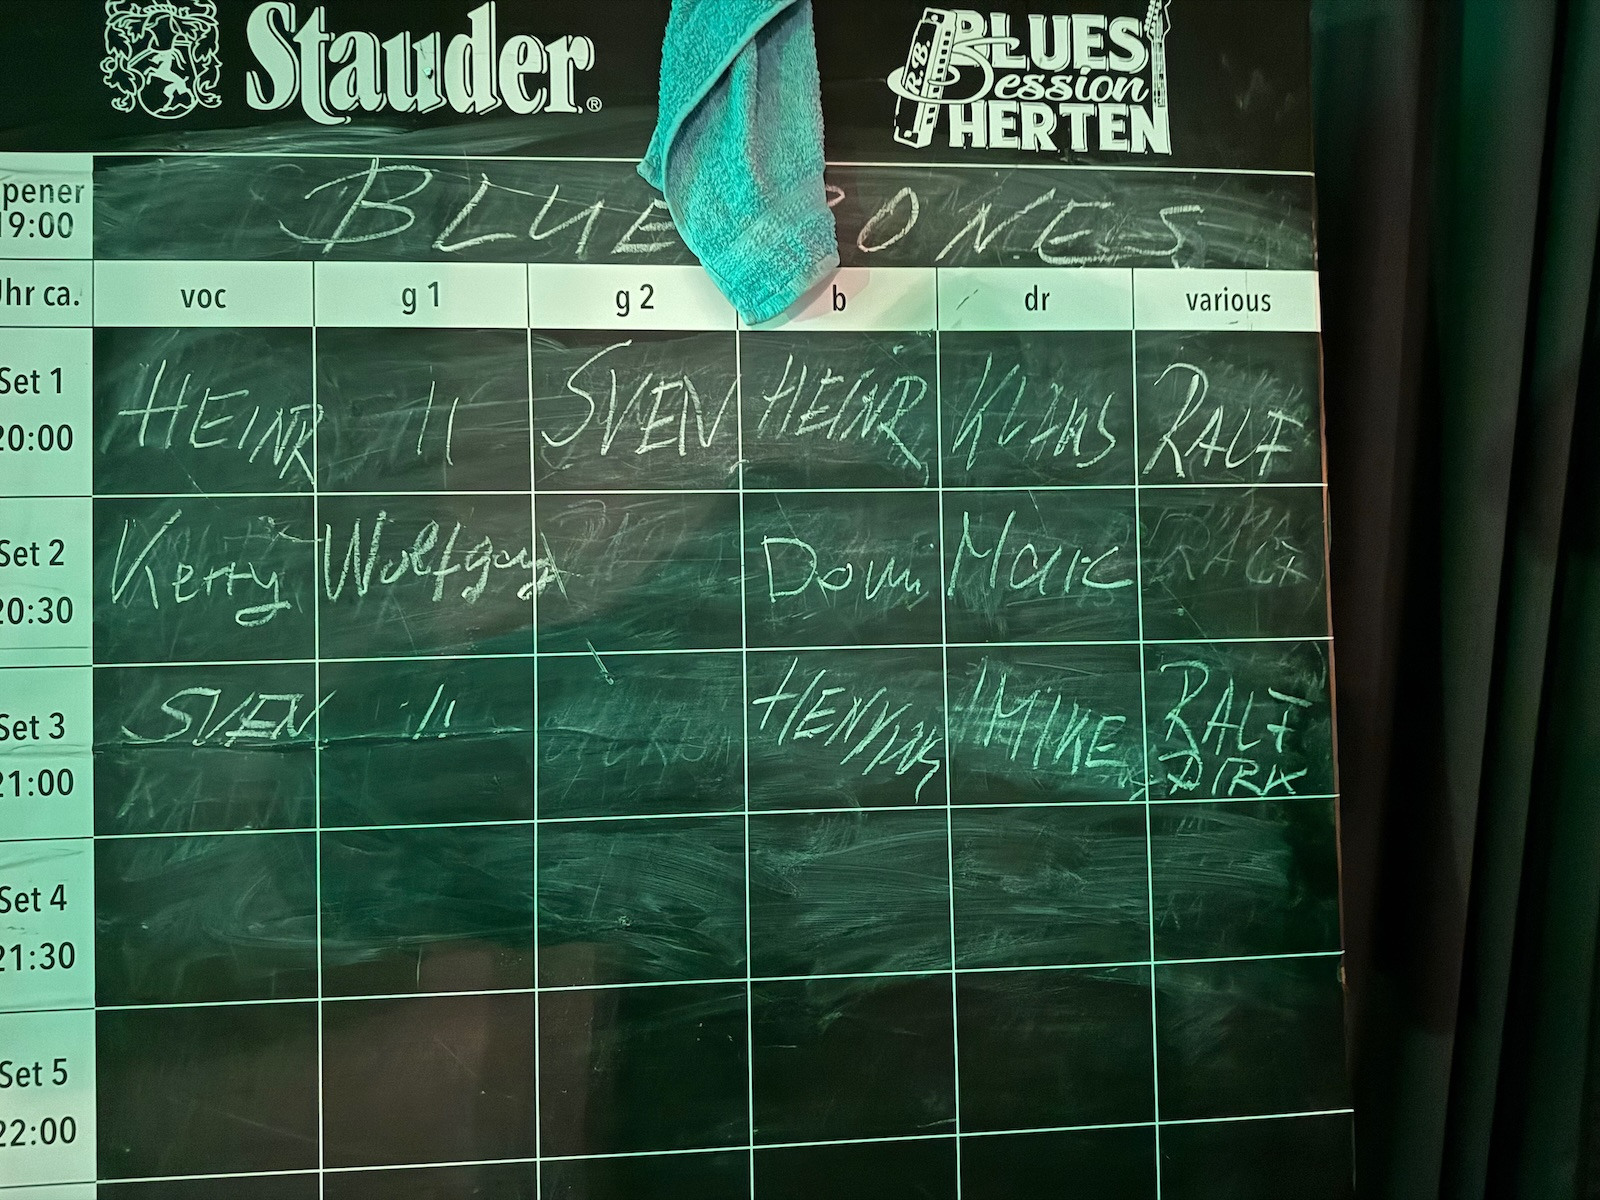 Stauder®
R.B. BLUES
Session
HERTEN
pener
19:00
BLUE ONES
Uhr ca. voc g 1 g 2 b dr various
Set 1
20:00
HEINR 11 SVEN HEINR KLAUS RALF
Set 2
20:30
Kerry Wolfgang Domi Marc RALF
Set 3
21:00
SVEN 11 HENNING MIKE RALF
DIRK
Set 4
21:30
Set 5
22:00